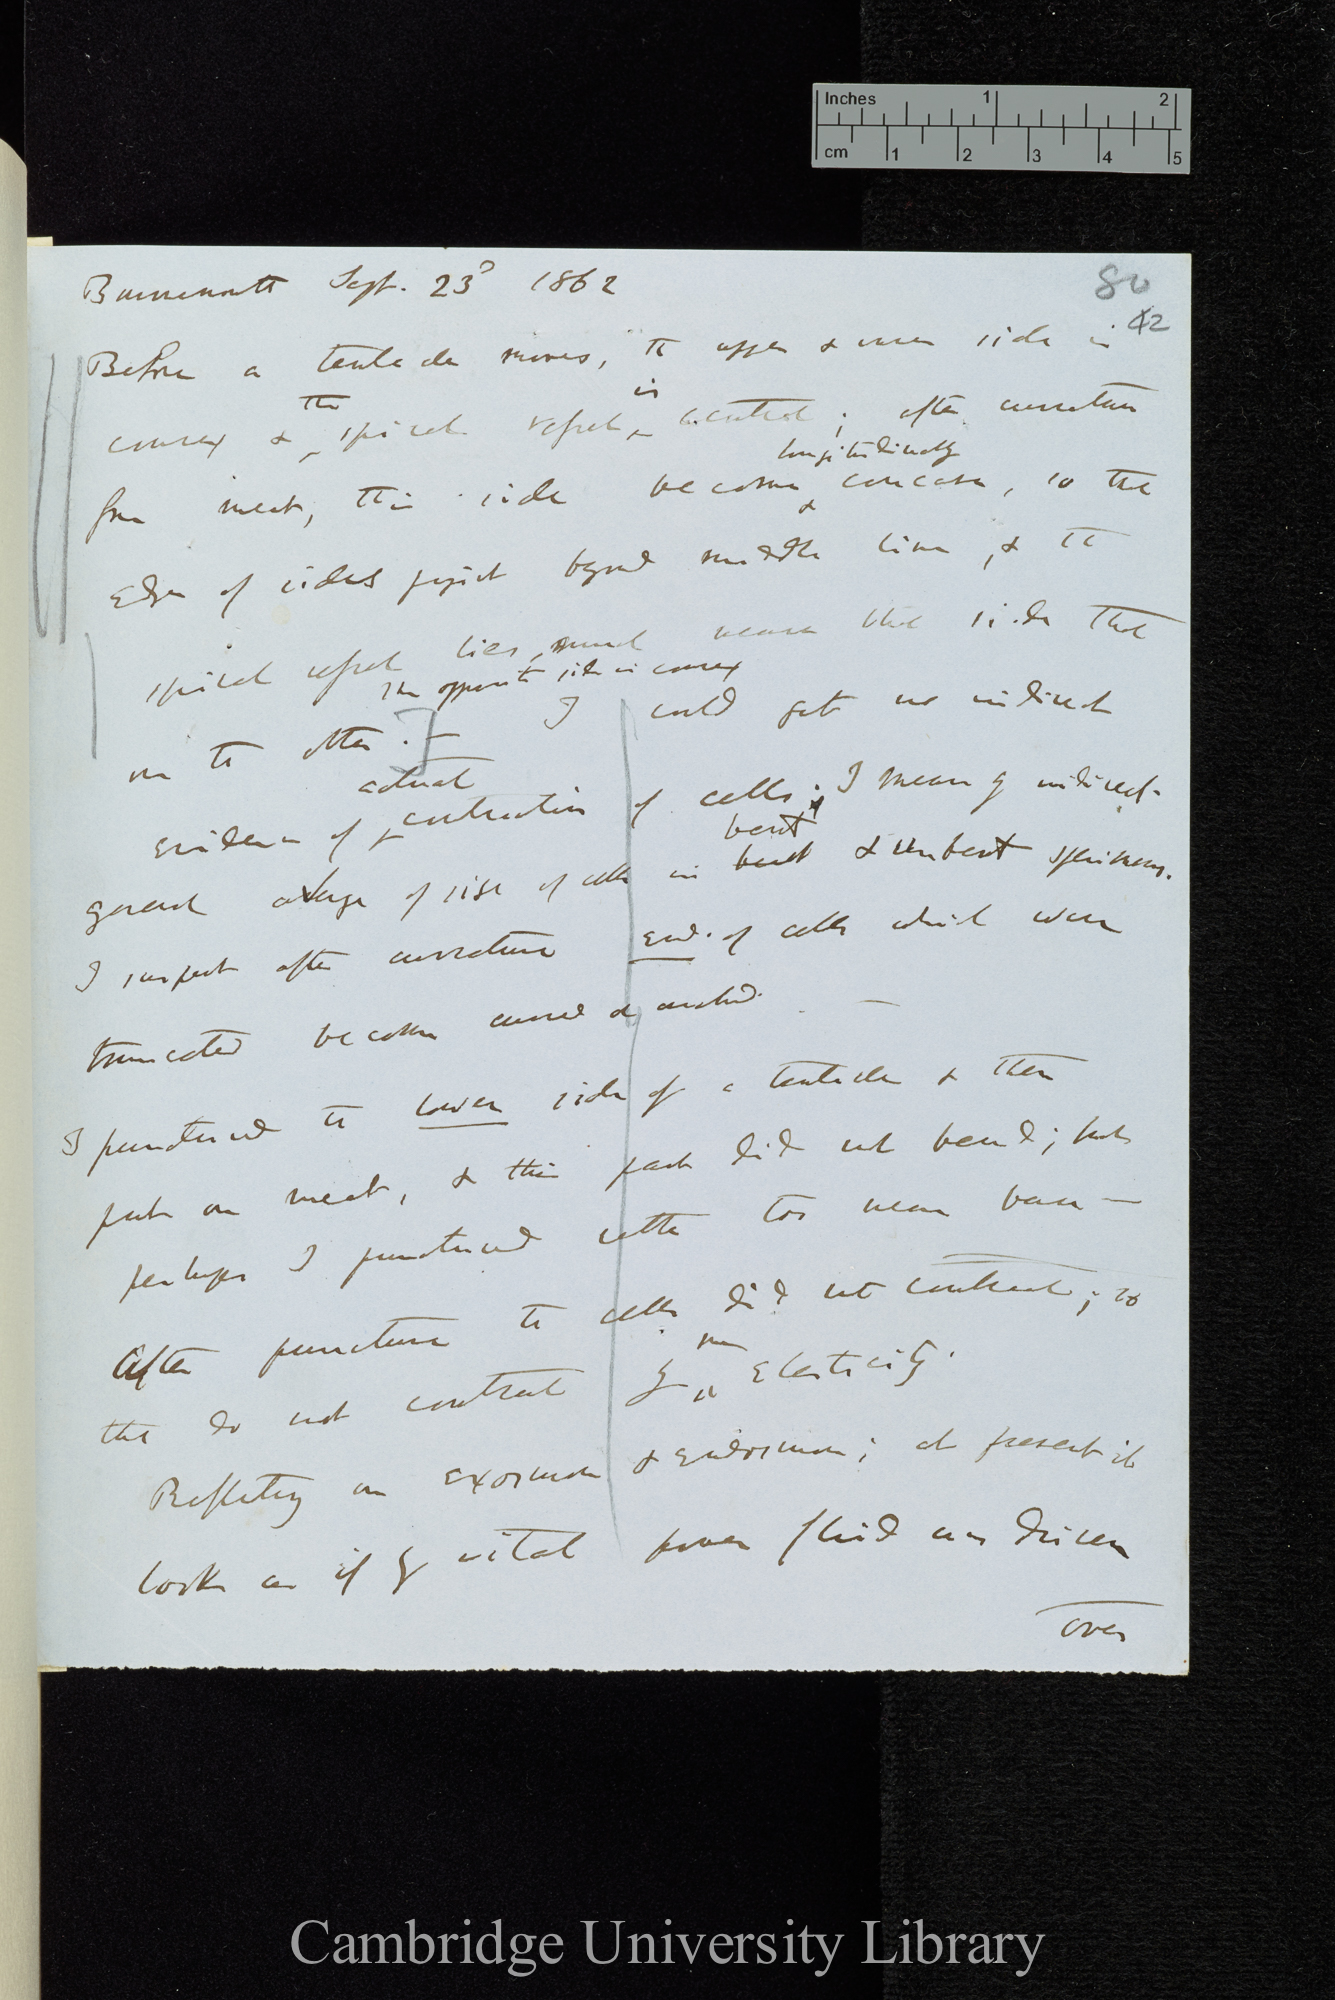 Inches 1 2
cm 1 2 3 4 5
80
42
Bournemouth Sept. 23d 1862
Before a tentacle moves, the upper & inner side is
convex & the spiral vessel is central; after curvature
from meat, this side becomes longitudinally concave, so the
edges of sides project beyond middle line, & the
spiral vessel lies much nearer the side that
the opposite side is convex
on to other. — I could get no indirect
evidence of actual contraction of cells; I mean by indirect
general average of size of cells in bent & unbent specimens.
I suspect after curvature ends of cells which were
truncated become curved & arched. —
I punctured the lower side of a tentacle & then
put on meat, & this part did not bend; but
perhaps I punctured rather too near base —
After puncture the cells did not contract; so
that do not contract by mere elasticity.
Reflecting on exosmose & endosmose; at present it
looks as if by vital power fluid was driven
over
Cambridge University Library